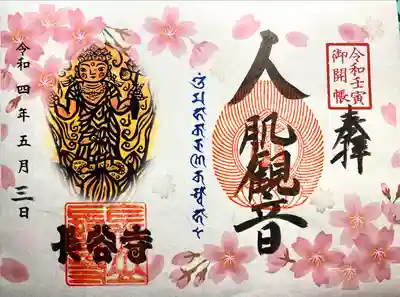 令和壬寅
御開帳
奉拝
人肌観音
長谷寺
令和四年五月三日